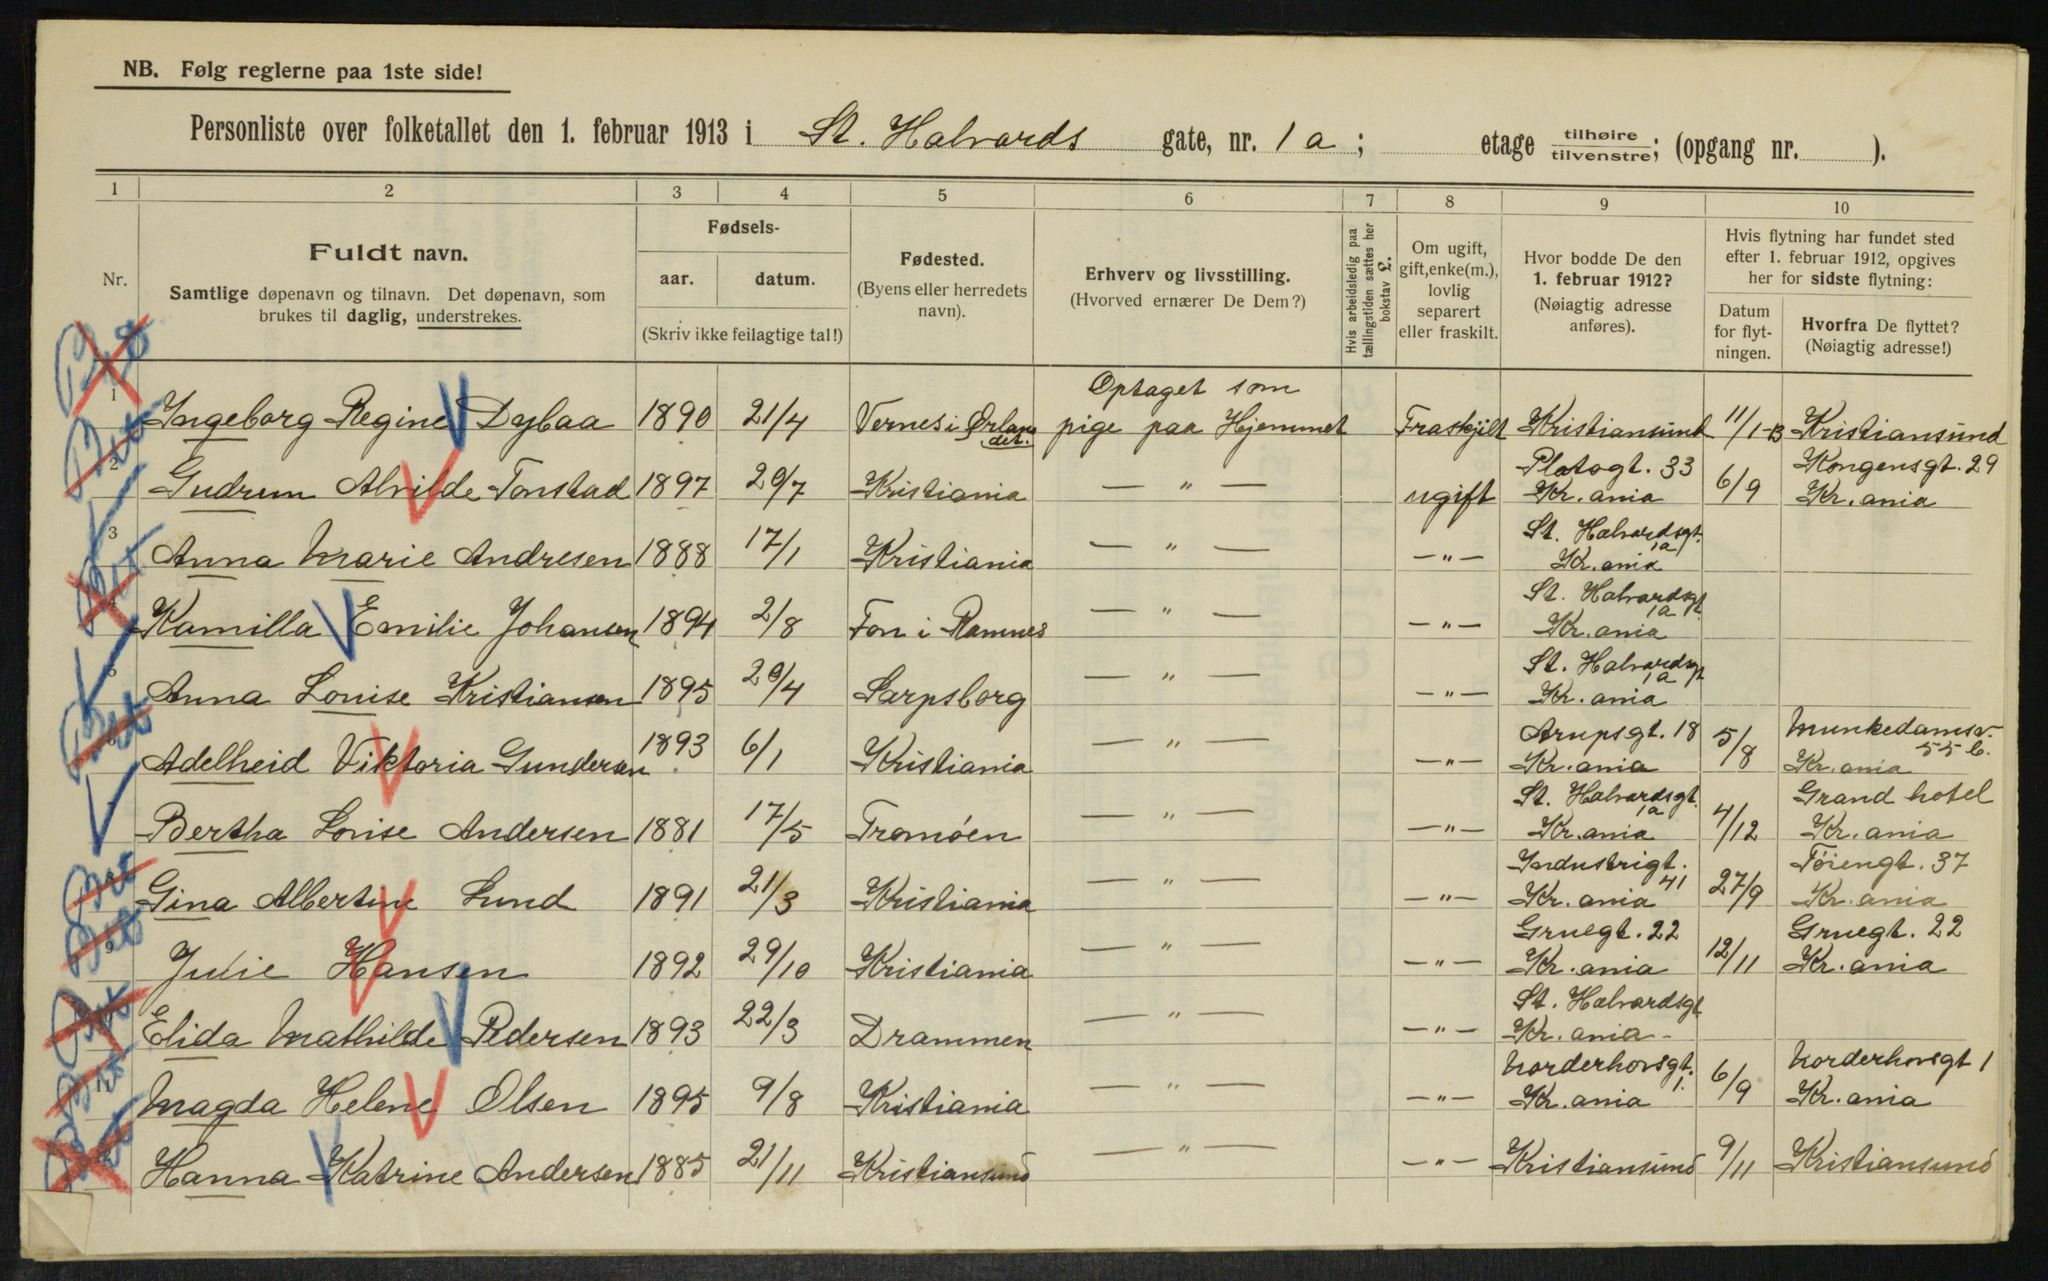 NB. Følg reglerne paa 1ste side!
Personliste over folketallet den 1. februar 1913 i St. Halvards gate, nr. 1 a ; etage tilhøire / tilvenstre; (opgang nr. ).
1 2 3 4 5 6 7 8 9 10
Nr.
Fuldt navn.
Samtlige døpenavn og tilnavn. Det døpenavn, som
brukes til daglig, understrekes.
Fødsels-
aar. datum.
(Skriv ikke feilagtige tal!)
Fødested.
(Byens eller herredets
navn).
Erhverv og livsstilling.
(Hvorved ernærer De Dem?)
Hvis arbeidsledig paa
tællingstiden sættes her
bokstav £.
Om ugift,
gift, enke(m.),
lovlig
separert
eller fraskilt.
Hvor bodde De den
1. februar 1912?
(Nøiagtig adresse
anføres).
Hvis flytning har fundet sted
efter 1. februar 1912, opgives
her for sidste flytning:
Datum
for flyt-
ningen.
Hvorfra De flyttet?
(Nøiagtig adresse!)
1 Ingeborg Regine Dybaa 1890 21/4 Vernes i Ørlandet. Optaget som pige paa Hjemmet Fraskjilt Kristiansund 11/1-13 Kristiansund
2 Gudrun Alvilde Tonstad 1897 29/7 Kristiania — " — ugift Platogt. 33 Kr.ania 6/9 Kongensgt. 29 Kr.ania
3 Anna Marie Andresen 1888 17/1 Kristiania — " — — " — St. Halvardsgt. 1a Kr.ania
4 Kamilla Emilie Johansen 1894 2/8 Fon i Ramnes — " — — " — St. Halvardsgt. 1a Kr.ania
5 Anna Louise Kristiansen 1895 29/4 Sarpsborg — " — — " — St. Halvardsgt 1a Kr.ania
6 Adelheid Viktoria Gundersen 1893 6/1 Kristiania — " — — " — Arupsgt. 18 Kr.ania 5/8 Munkedamsv. 55 b. Kr.ania
Bertha Lovise Andersen 1881 17/5 Tromöen — " — — " — St. Halvardsgt. 1a Kr.ania 4/12 Grand hotel Kr.ania
Gina Albertine Lund 1891 21/3 Kristiania — " — — " — Industrigt. 41 Kr.ania 27/9 Töiengt. 37 Kr.ania
9 Julie Hansen 1892 29/10 Kristiania — " — — " — Gruegt. 22 Kr.ania 12/11 Gruegt. 22 Kr.ania
Elida Mathilde Pedersen 1893 22/3 Drammen — " — — " — St. Halvardsgt Kr.ania -
Magda Helene Olsen 1895 9/8 Kristiania — " — — " — Norderhovsgt. 1. Kr.ania 6/9 Norderhovsgt 1 Kr.ania
Hanna Katrine Andersen 1885 21/11 Kristiansund — " — — " — Kristiansund 9/11 Kristiansund